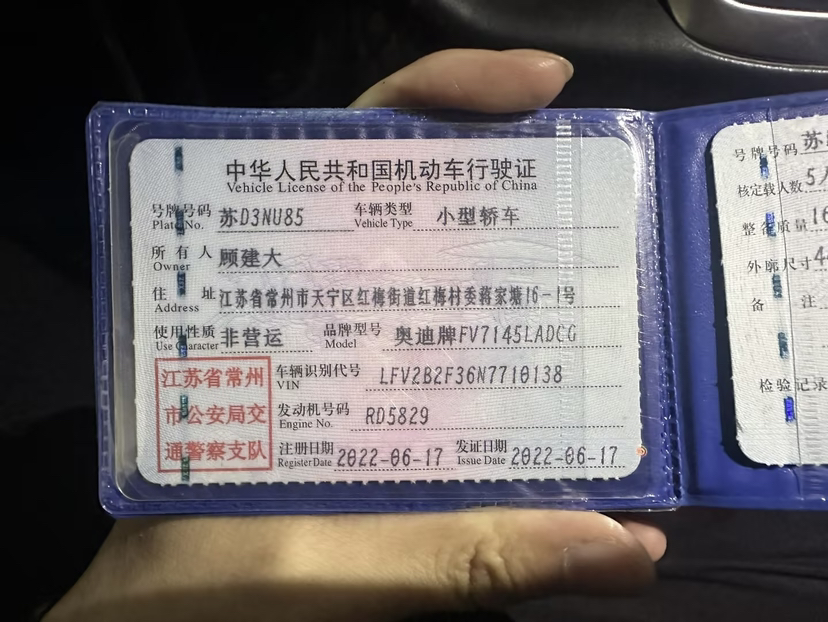 中华人民共和国机动车行驶证
Vehicle License of the People's Republic of China
号牌号码 苏D3NU85 车辆类型 小型轿车
Plate No. Vehicle Type
所有人 顾建大
Owner
住址 江苏省常州市天宁区红梅街道红梅村委蒋家塘16-1号
Address
使用性质 非营运 品牌型号 奥迪牌FV7145LADCG
Use Character Model
江苏省常州
市公安局交
通警察支队
车辆识别代号 LFV2B2F36N7710138
VIN
发动机号码 RD5829
Engine No.
注册日期 2022-06-17 发证日期 2022-06-17
Register Date Issue Date
号牌号码 苏
核定载人数 5人
整备质量 16
外廓尺寸 4
备注
检验记录